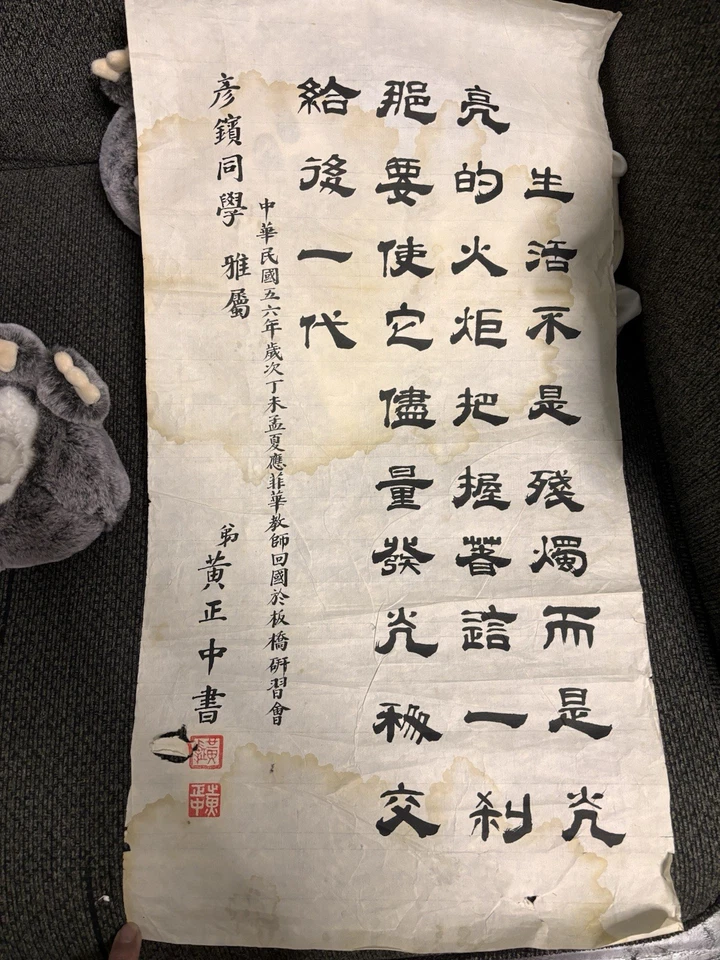 生活不是殘燭而是光
亮的火炬把握著這一剎
那要使它儘量發光移交
給後一代
中華民國五六年歲次丁未孟夏應菲華教師回國於板橋研習會
彥鑌同學 雅屬
弟黃正中書
黃正中